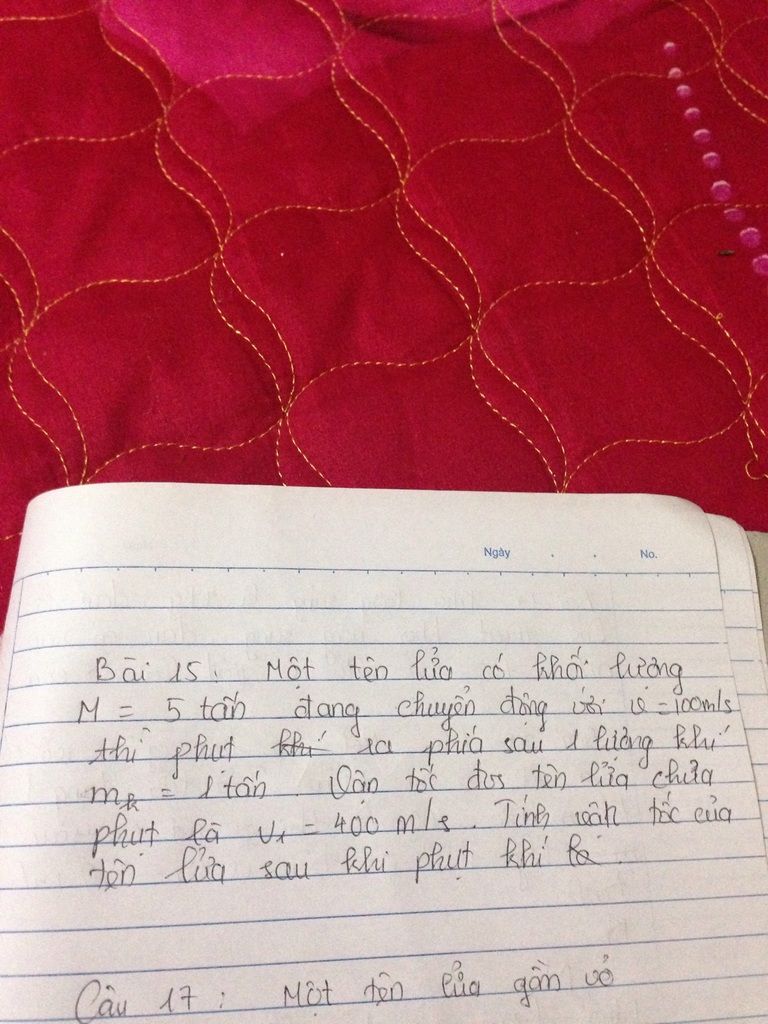 Ngày . . No.
Bài 15. Một tên lửa có khối lượng
M = 5 tấn đang chuyển động với v = 100m/s
thì phụt khí ra phía sau 1 lượng khí
mk = 1 tấn. Vận tốc đvs tên lửa chưa
phụt là v1 = 400 m/s. Tính vận tốc của
tên lửa sau khi phụt khí
Câu 17: Một tên lửa gồm vỏ